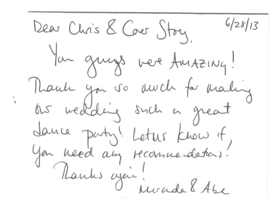 6/28/13
Dear Chris & Cover Story,
You guys were AMAZING!
Thank you so much for making
our wedding such a great
dance party! Let us know if
you need any recommendations!
Thanks again!
& Abe